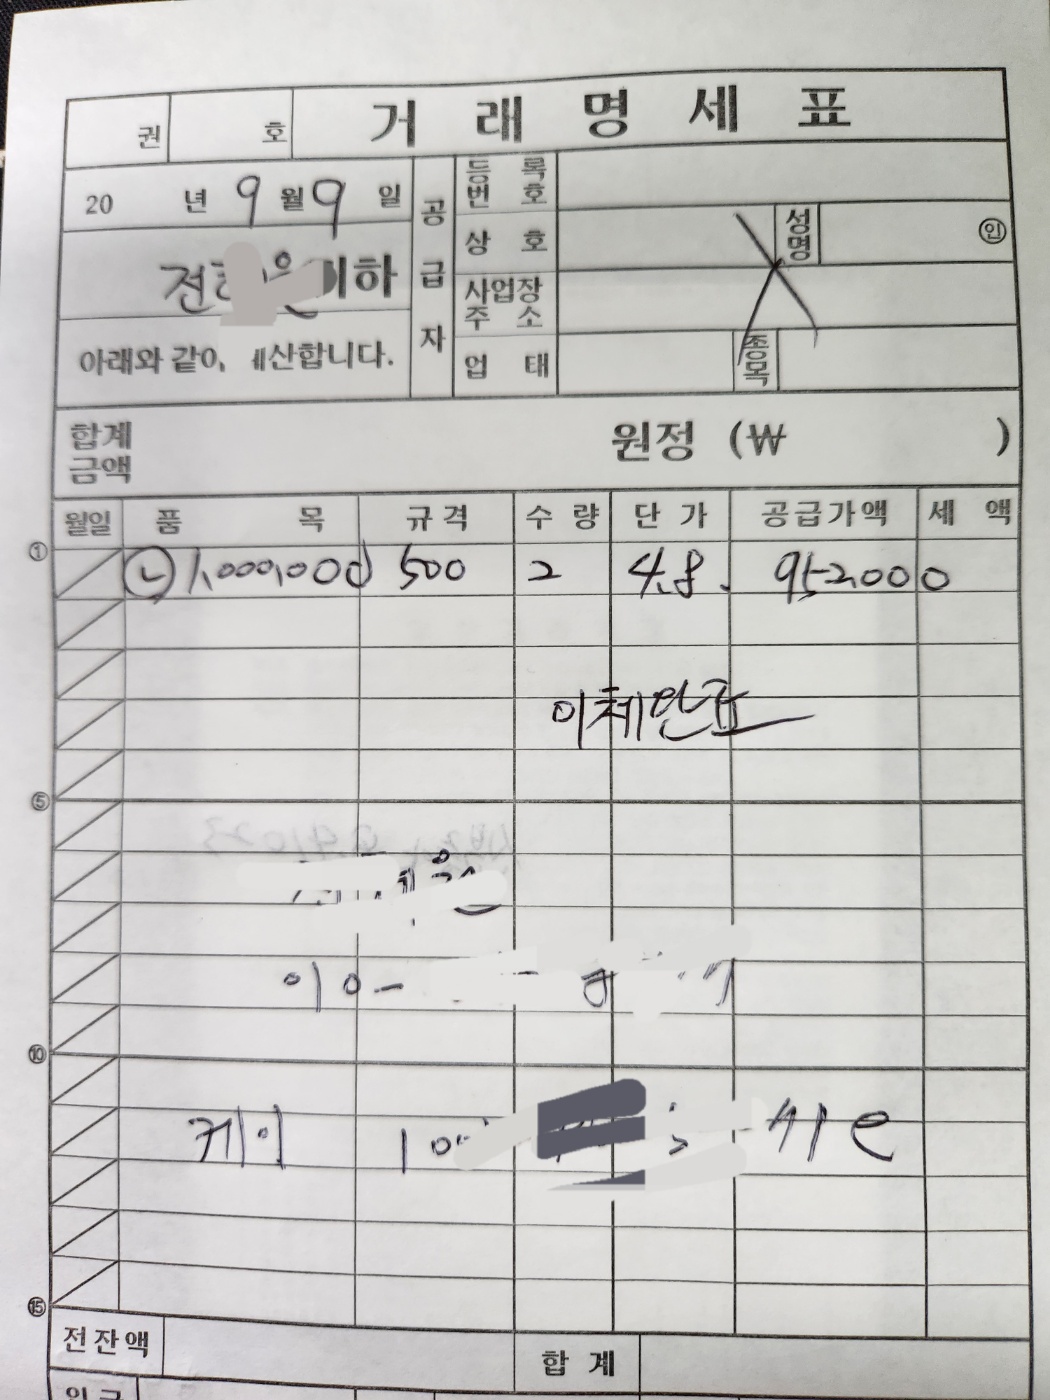 권 호 거래명세표
20 년 9월 9일
공급자
등록번호
상호
성명
인
사업장주소
업태
종목
귀하
아래와 같이 계산합니다.
합계금액 원정 (₩ )
월일 품목 규격 수량 단가 공급가액 세액
① ㄴ 1,000,000 500 2 4.8. 952,000
이체완료
⑤
⑩
케이
⑮
전잔액 합계